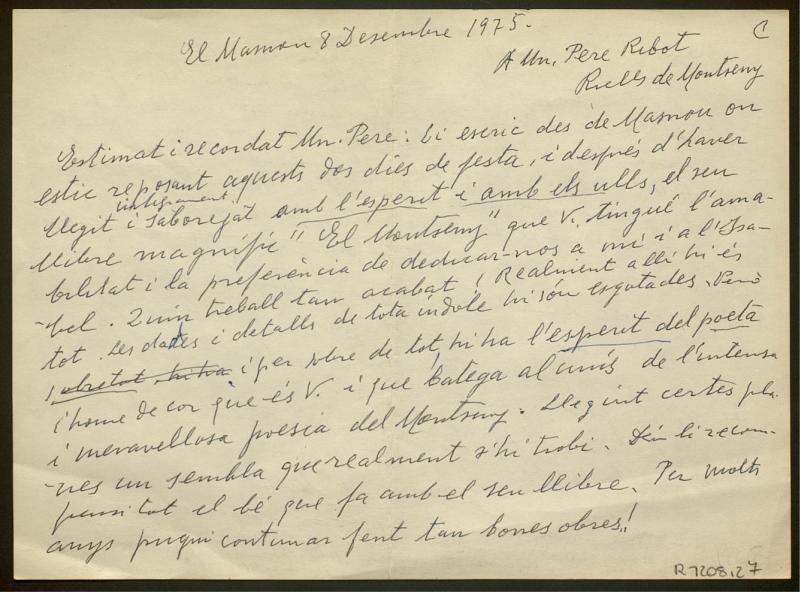 El Masnou 8 Desembre 1975.
C
A Mn. Pere Ribot
Riells de Montseny
Estimat i recordat Mn. Pere: Li escric des de Masnou on
estic reposant aquests dos dies de festa, i després d'haver
llegit i íntegrament saborejat amb l'esperit i amb els ulls, el seu
llibre magnífic "El Montseny" que V. tingué l'ama-
bilitat i la preferència de dedicar-nos a mi i a l'Isa-
bel. Quin treball tan acabat! Realment allí hi és
tot. Les dades i detalls de tota índole hi són esgotades. Però
sobretot hi ha i per sobre de tot, hi ha l'esperit del poeta
i home de cor que és V. i que batega al uníś de l'intensa
i meravellosa poesia del Montseny. Llegint certes plà-
nes un sembla que realment s'hi trobi. Déu li recom-
pensi tot el bé que fa amb el seu llibre. Per molts
anys pugui continuar fent tan bones obres!
R.7208,27